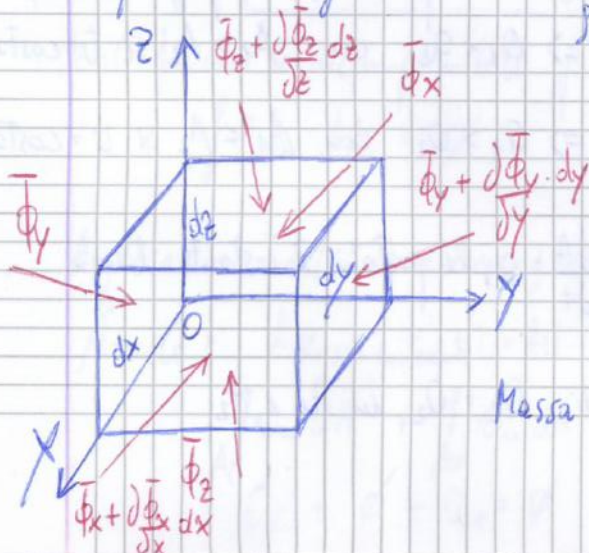 Z
Φ̄z + ∂Φ̄z/∂z dz
Φ̄x
Φ̄y + ∂Φ̄y/∂y · dy
Φ̄y
dz
dy
Y
O
dx
Massa
X
Φ̄z
Φ̄x + ∂Φ̄x/∂x dx